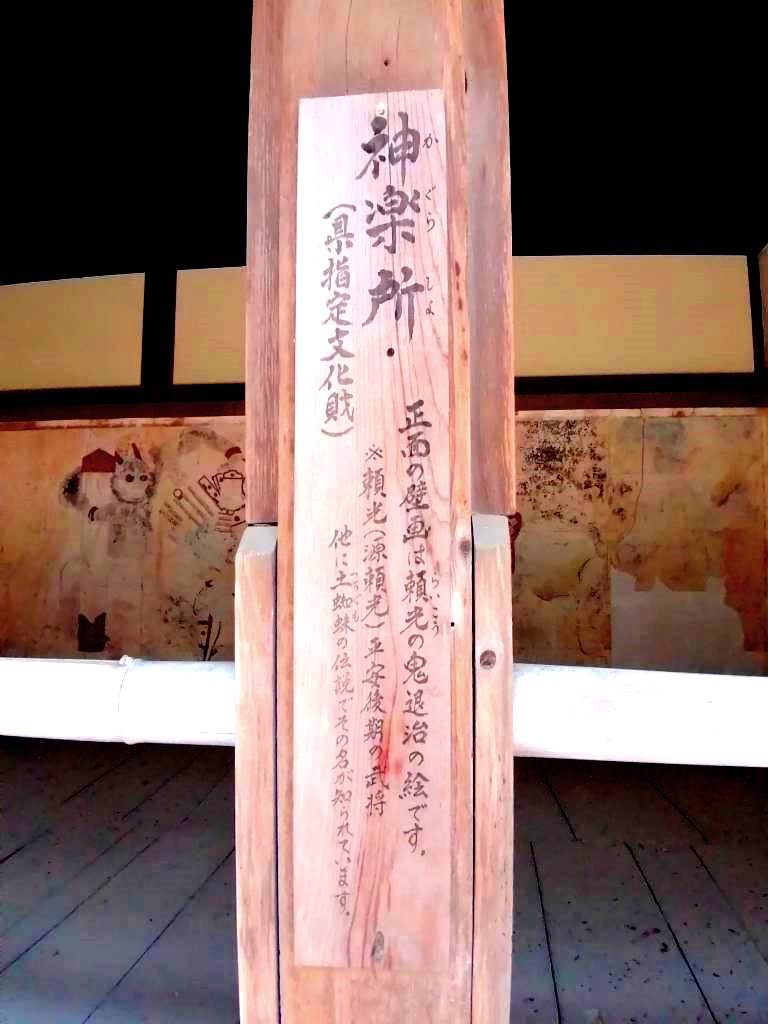 神楽所
かぐらしょ
(県指定文化財)
正面の壁画は頼光の鬼退治の絵です。
らいこう
※頼光(源頼光)平安後期の武将
他に土蜘蛛の伝説でその名が知られています。
つちぐも